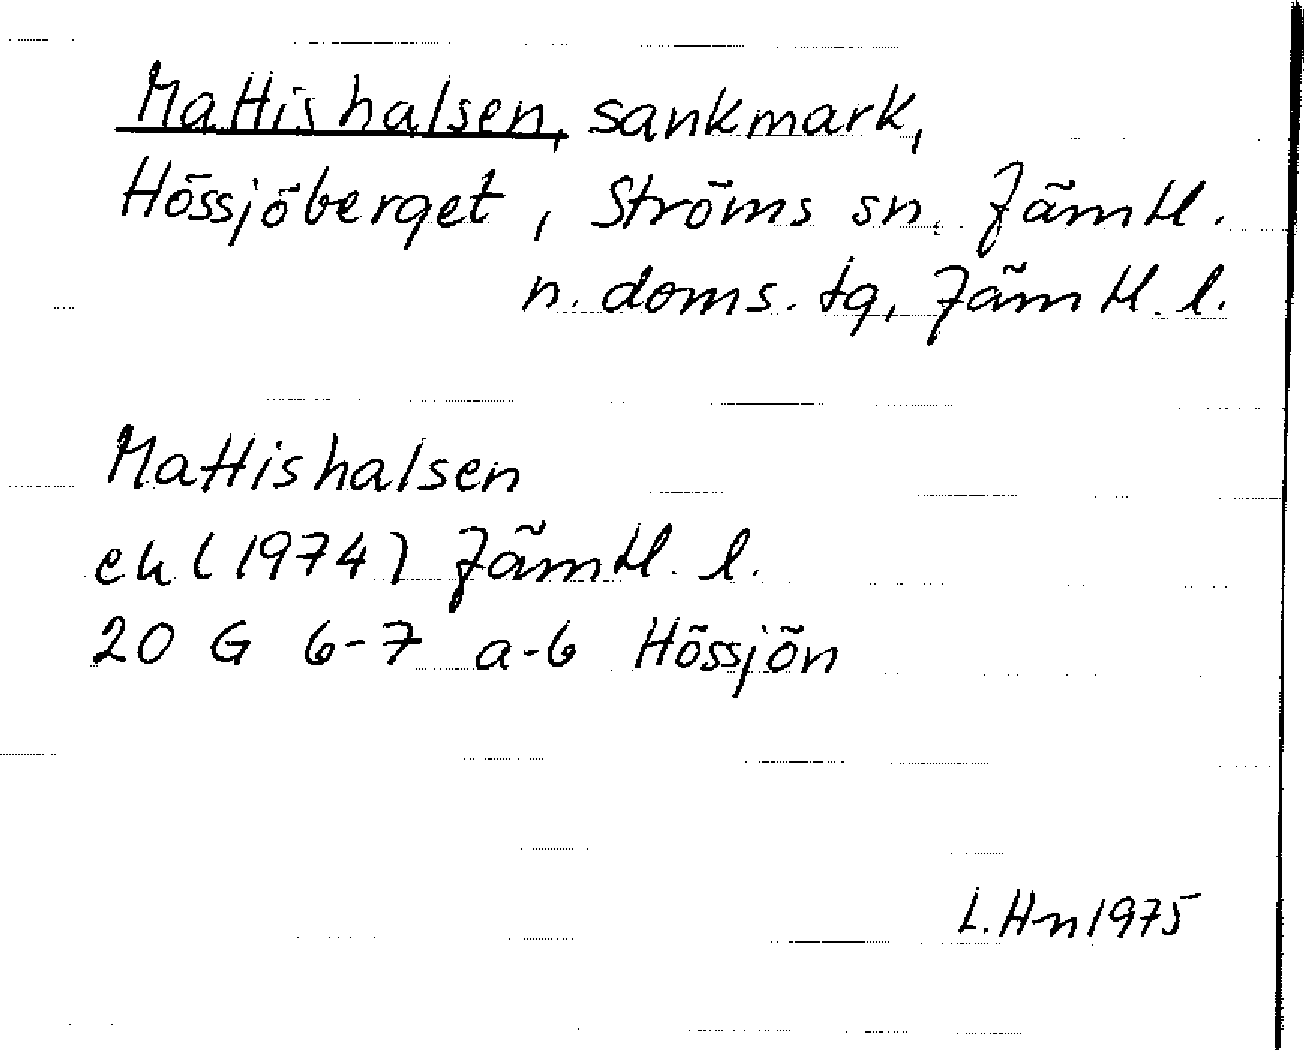 Mattishalsen, sankmark,
Hössjöberget, Ströms sn. Jämtl.
n. doms. tg, Jämtl. l.
Mattishalsen
ek (1974) Jämtl. l.
20 G 6-7 a-b Hössjön
L. Hn 1975